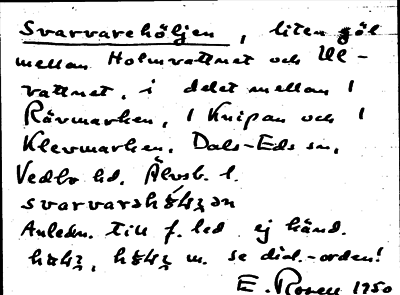 Svarvarehöljen, liten göl
mellan Holmvattnet och Ule-
vattnet, i delet mellan 1
Rävmarken, 1 Knipan och 1
Klevmarken. Dals-Eds sn,
Vedbo hd. Älvsb. l.
Anledn. till f. led ej känd.
m. se dial.-orden!
E. Rosen 1950